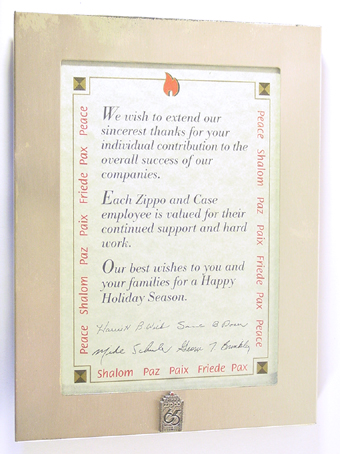 We wish to extend our
sincerest thanks for your
individual contribution to the
overall success of our
companies.
Each Zippo and Case
employee is valued for their
continued support and hard
work.
Our best wishes to you and
your families for a Happy
Holiday Season.
Mike Schuler George
Peace Shalom Paz Paix Friede Pax Peace
Peace Shalom Paz Paix Friede Pax Peace
Shalom Paz Paix Friede Pax